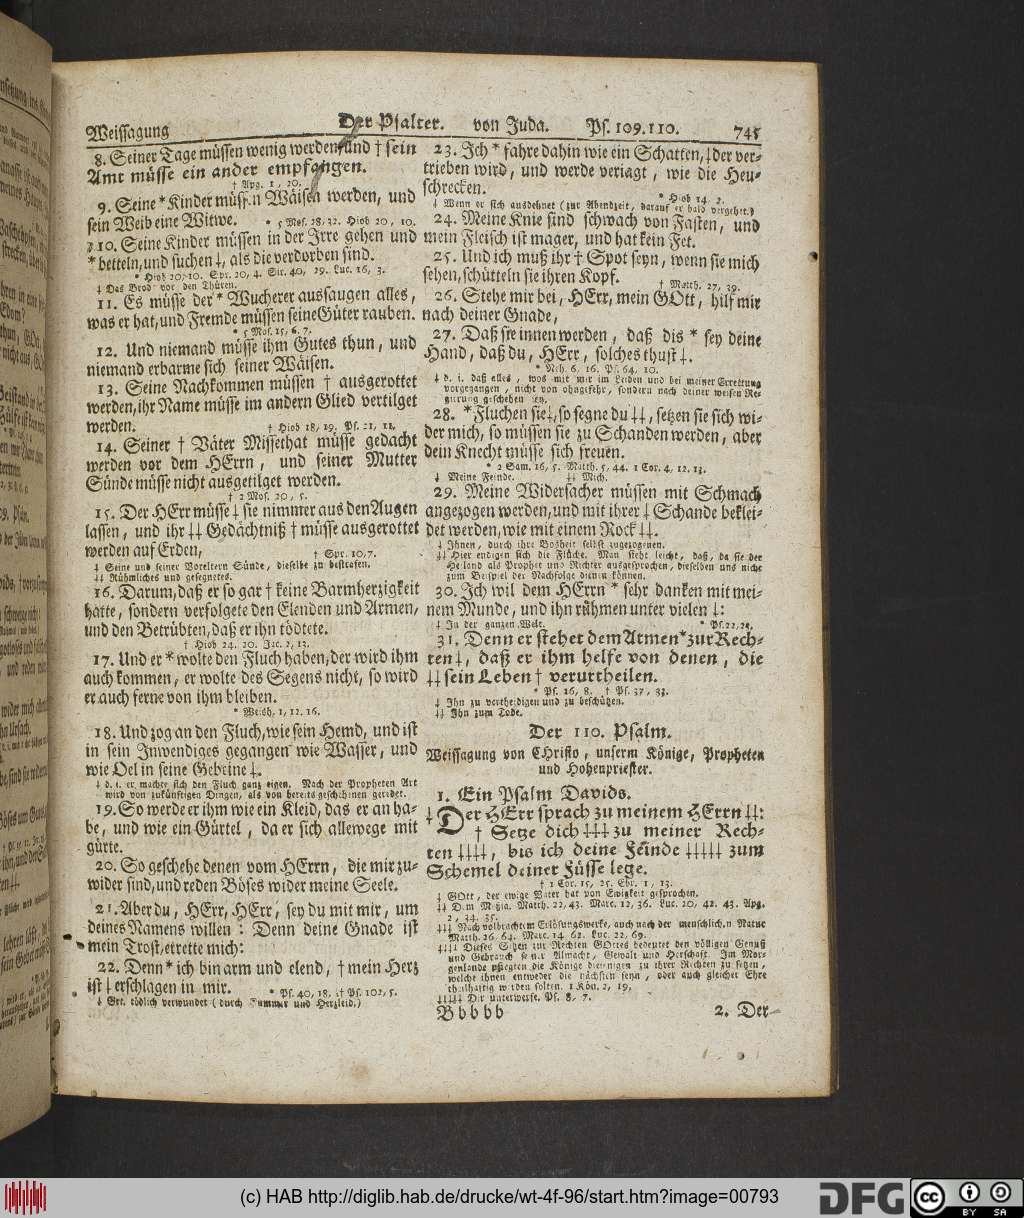 Weissagung Der Psalter. von Juda. Ps. 109.110. 745
8. Seiner Tage müssen wenig werden, und † sein
Amt müsse ein ander empfangen.
† Apg. 1, 20.
9. Seine * Kinder müssen Wäisen werden, und
sein Weib eine Witwe. * 5 Mos. 28, 32. Hiob 20, 10.
10. Seine Kinder müssen in der Irre gehen und
* betteln, und suchen ‡, als die verdorben sind.
* Hiob 20, 10. Spr. 20, 4. Sir. 40, 29. Luc. 16, 3.
‡ Das Brod vor den Thüren.
11. Es müsse der * Wucherer aussaugen alles,
was er hat, und Fremde müssen seine Güter rauben.
* 5 Mos. 15, 6. 7.
12. Und niemand müsse ihm Gutes thun, und
niemand erbarme sich seiner Wäisen.
13. Seine Nachkommen müssen † ausgerottet
werden, ihr Name müsse im andern Glied vertilget
werden. † Hiob 18, 19. Ps. 21, 11.
14. Seiner † Väter Missethat müsse gedacht
werden vor dem HErrn, und seiner Mutter
Sünde müsse nicht ausgetilget werden.
† 2 Mos. 20, 5.
15. Der HErr müsse ‡ sie nimmer aus den Augen
lassen, und ihr ‡‡ Gedächtniß † müsse ausgerottet
werden auf Erden, † Spr. 10, 7.
‡ Seine und seiner Voreltern Sünde, dieselbe zu bestrafen.
‡‡ Rühmliches und gesegnetes.
16. Darum, daß er so gar † keine Barmherzigkeit
hatte, sondern verfolgete den Elenden und Armen,
und den Betrübten, daß er ihn tödtete.
† Hiob 24, 20. Jac. 2, 13.
17. Und er * wolte den Fluch haben, der wird ihm
auch kommen, er wolte des Segens nicht, so wird
er auch ferne von ihm bleiben.
* Weish. 1, 12. 16.
18. Und zog an den Fluch, wie sein Hemd, und ist
in sein Inwendiges gegangen wie Wasser, und
wie Oel in seine Gebeine ‡.
‡ d. i. er machte sich den Fluch ganz eigen. Nach der Propheten Art
wird von zukünftigen Dingen, als von bereits geschehenen geredet.
19. So werde er ihm wie ein Kleid, das er an ha-
be, und wie ein Gürtel, da er sich allewege mit
gürte.
20. So geschehe denen vom HErrn, die mir zu-
wider sind, und reden Böses wider meine Seele.
21. Aber du, HErr, HErr, sey du mit mir, um
deines Namens willen: Denn deine Gnade ist
mein Trost, errette mich:
22. Denn * ich bin arm und elend, † mein Herz
ist ‡ erschlagen in mir. * Ps. 40, 18. † Ps. 102, 5.
‡ Gr. tödlich verwundet (durch Jammer und Herzleid.)
23. Ich * fahre dahin wie ein Schatten, ‡ der ver-
trieben wird, und werde verjagt, wie die Heu-
schrecken. * Hiob 14, 2.
‡ Wenn er sich ausdehnet (zur Abendzeit, darauf er bald vergehet.)
24. Meine Knie sind schwach von Fasten, und
mein Fleisch ist mager, und hat kein Fet.
25. Und ich muß ihr † Spot seyn, wenn sie mich
sehen, schütteln sie ihren Kopf.
† Matth. 27, 39.
26. Stehe mir bei, HErr, mein GOtt, hilf mir
nach deiner Gnade,
27. Daß sie innen werden, daß dis * sey deine
Hand, daß du, HErr, solches thust ‡.
* Neh. 6, 16. Ps. 64, 10.
‡ d. i. daß alles, was mit mir im Leiden und bei meiner Errettung
vorgegangen, nicht von ohngefehr, sondern nach deiner weisen Re-
gierung geschehen sey.
28. * Fluchen sie ‡, so segne du ‡‡, setzen sie sich wi-
der mich, so müssen sie zu Schanden werden, aber
dein Knecht müsse sich freuen.
* 2 Sam. 16, 5. Matth. 5, 44. 1 Cor. 4, 12. 13.
‡ Meine Feinde. ‡‡ Mich.
29. Meine Widersacher müssen mit Schmach
angezogen werden, und mit ihrer ‡ Schande beklei-
det werden, wie mit einem Rock ‡‡.
‡ Ihnen, durch ihre Bosheit selbst zugezogenen.
‡‡ Hier endigen sich die Flüche. Man sieht leicht, daß, da sie der
Heiland als Prophet und Richter ausgesprochen, dieselben uns nicht
zum Beispiel der Nachfolge dienen können.
30. Ich wil dem HErrn * sehr danken mit mei-
nem Munde, und ihn rühmen unter vielen ‡:
‡ In der ganzen Welt. * Ps. 22, 23.
31. Denn er stehet dem Armen * zur Rech-
ten ‡, daß er ihm helfe von denen, die
‡‡ sein Leben † verurtheilen.
* Ps. 16, 8. † Ps. 37, 33.
‡ Ihn zu vertheidigen und zu beschützen.
‡‡ Ihn zum Tode.
Der 110. Psalm.
Weissagung von CHristo, unserm Könige, Propheten
und Hohenpriester.
1. Ein Psalm Davids.
‡ Der HErr sprach zu meinem HErrn ‡‡:
† Setze dich ‡‡‡ zu meiner Rech-
ten ‡‡‡‡, bis ich deine Feinde ‡‡‡‡‡ zum
Schemel deiner Füsse lege.
† 1 Cor. 15, 25. Ebr. 1, 13.
‡ GOtt, der ewige Vater hat von Ewigkeit gesprochen.
‡‡ Dem Meßia. Matth. 22, 43. Marc. 12, 36. Luc. 20, 42. 43. Apg.
2, 34. 35.
‡‡‡ Nach volbrachtem Erlösungswerke, auch nach der menschlichen Natur
Matth. 26, 64. Marc. 14, 62. Luc. 22, 69.
‡‡‡‡ Dieses Sitzen zur Rechten GOttes bedeutet den völligen Genuß
und Gebrauch seiner Almacht, Gewalt und Herschaft. Im Mor-
genlande pflegten die Könige diejenigen zu ihrer Rechten zu setzen,
welche ihnen entweder die nächsten seyn, oder auch gleicher Ehre
theilhaftig werden solten. 1 Kön. 2, 19.
‡‡‡‡‡ Dir unterwerfe. Ps. 8, 7.
Bbbbb 2. Der
(c) HAB http://diglib.hab.de/drucke/wt-4f-96/start.htm?image=00793
DFG cc BY SA